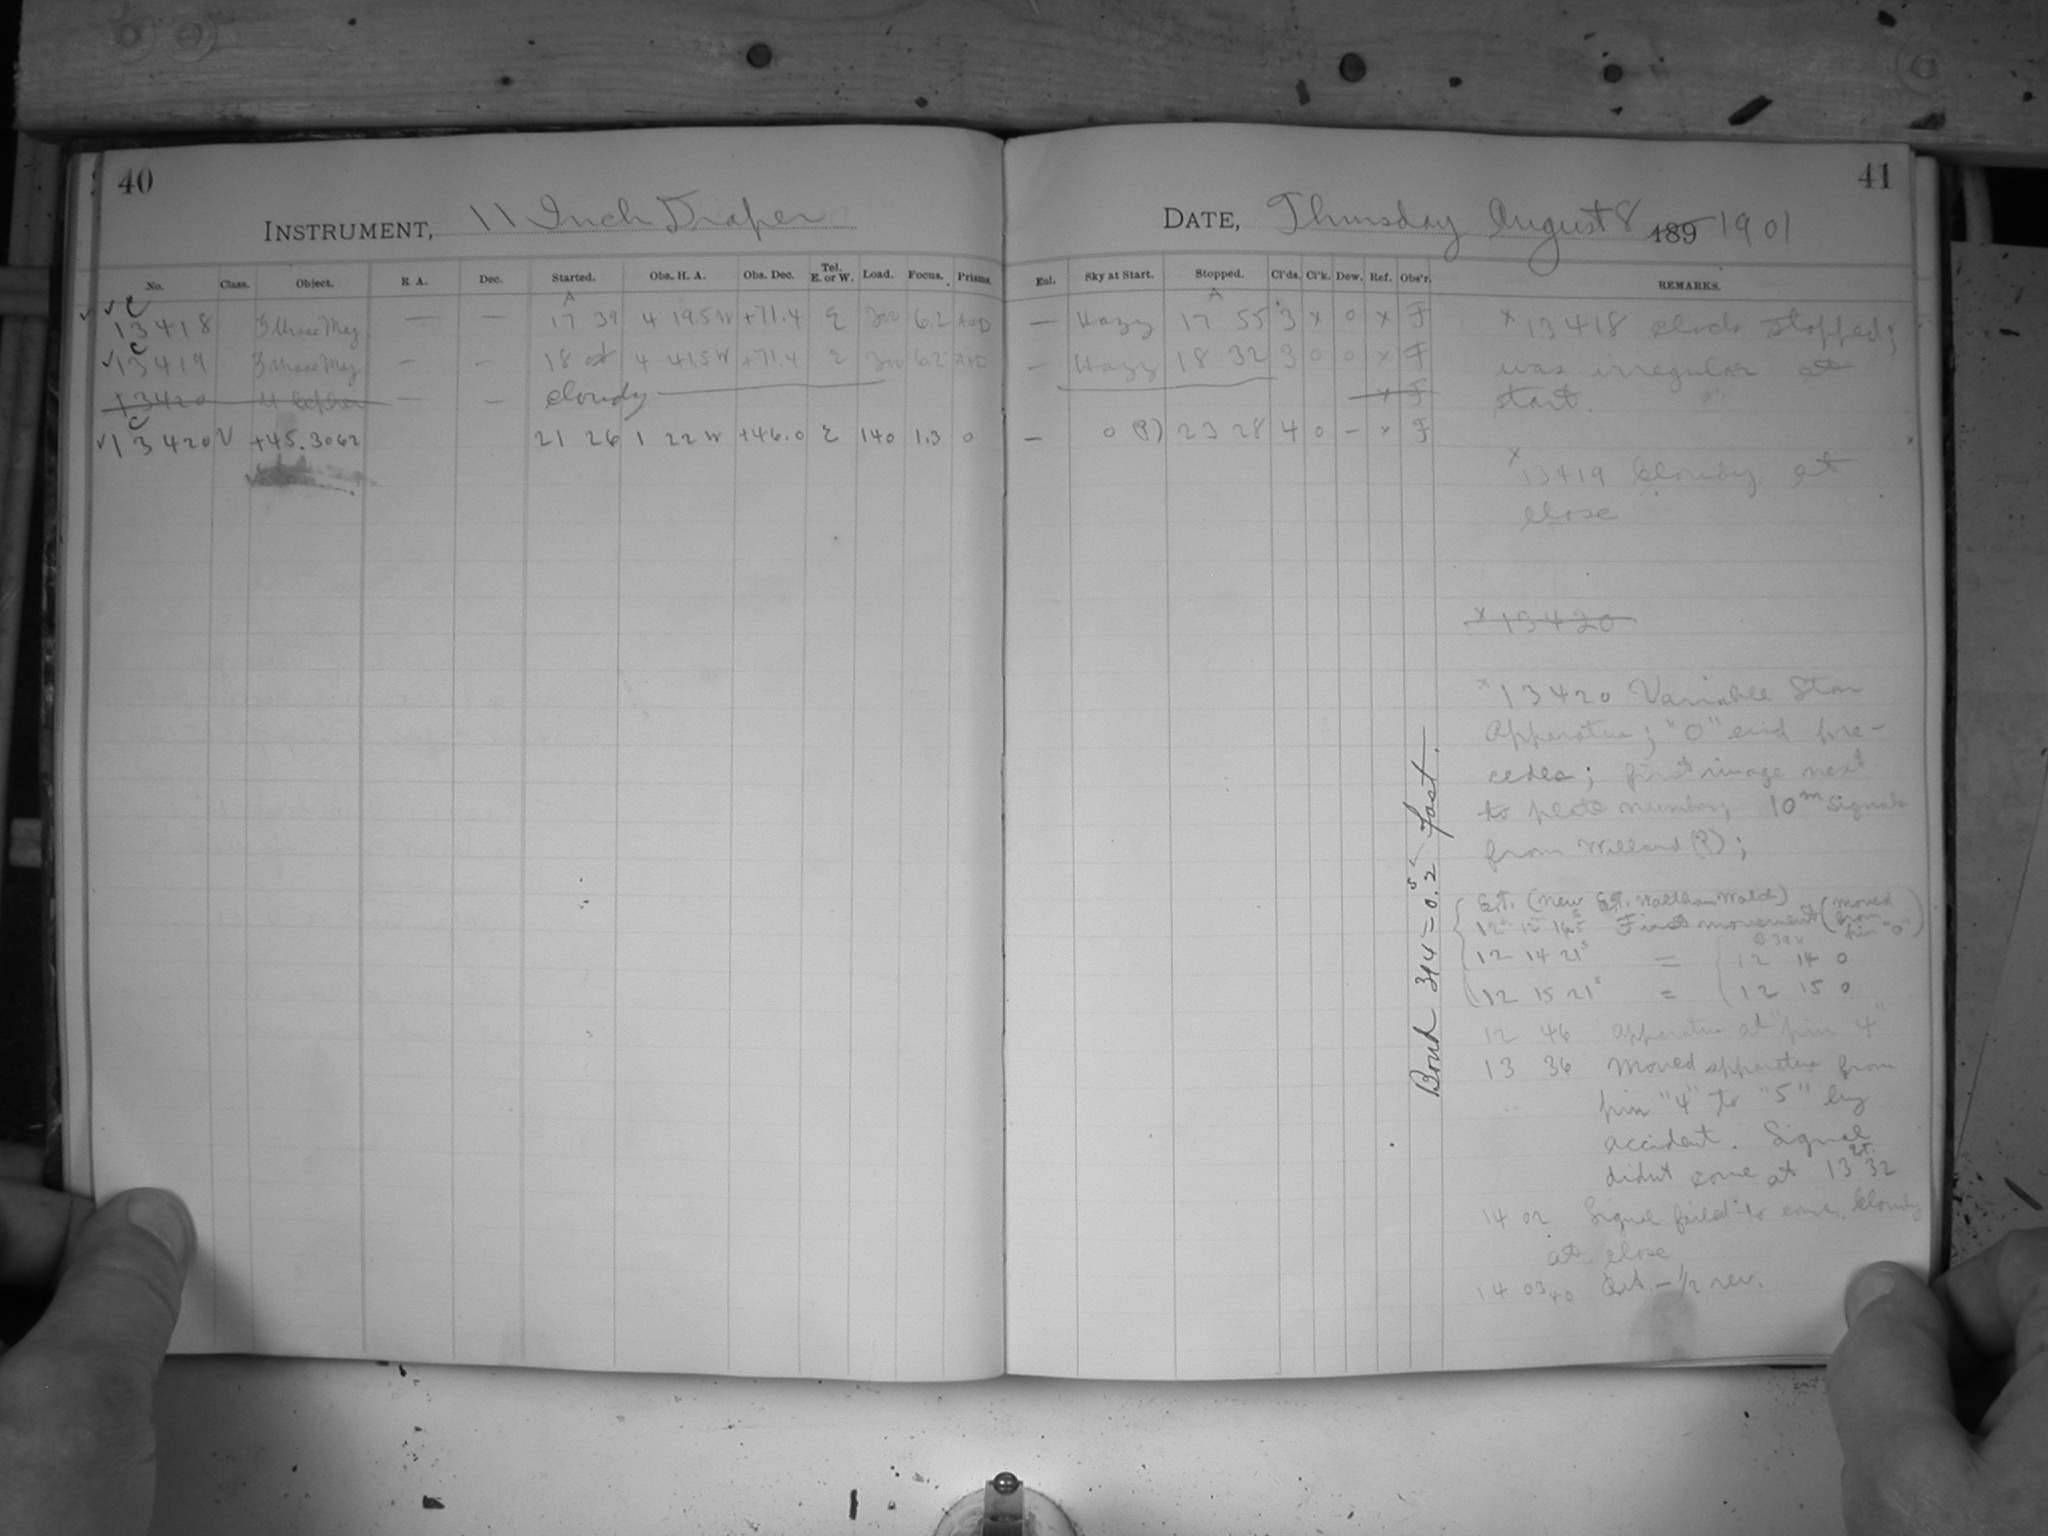 40
INSTRUMENT, 11 Inch Draper
No. Class. Object. R A. Dec. Started. Obs. H. A. Obs. Dec. Tel. E. or W. Load. Focus. Prisms.
A
C
13418 — — 17 39 4 19.5 W +71.4 E 6.2
C
13419 — - 18 4 41.5 W +71.4 E 6.2
13420 — — cloudy
C
13420 V +45.3062 21 26 1 22 W +46.0 E 140 1.3 0
41
DATE, Thursday August 8 189 1901
Enl. Sky at Start. Stopped. Cl'ds. Cl'k. Dew. Ref. Obs'r. REMARKS.
A
— Hazy 17 55 3 x 0 x F
— Hazy 18 32 3 0 0 x F
x F
— 0 (?) 23 28 4 0 - x F
x 13418 clock stopped;
was irregular at
start.
x 13419 Cloudy at
close
x 13420
x 13420 Variable Star
Apparatus; "0" end pre-
cedes; first image next
to plate number; 10m signals
from Willard (?);
E.T. (new E.T. Waltham Watch)
12 12 16.5 First movement (moved from pin "0")
12 14 21s = 12 14 0
12 15 21s = 12 15 0
12 46 apparatus at "pin 4"
13 36 Moved apparatus from
pin "4" to "5" by
accident. Signal
didnt come at 13 32
14 02 Signal failed to come. Cloudy
at close
14 03 40 — 1/2 rev.
Bond 394 = 0.2s fast.